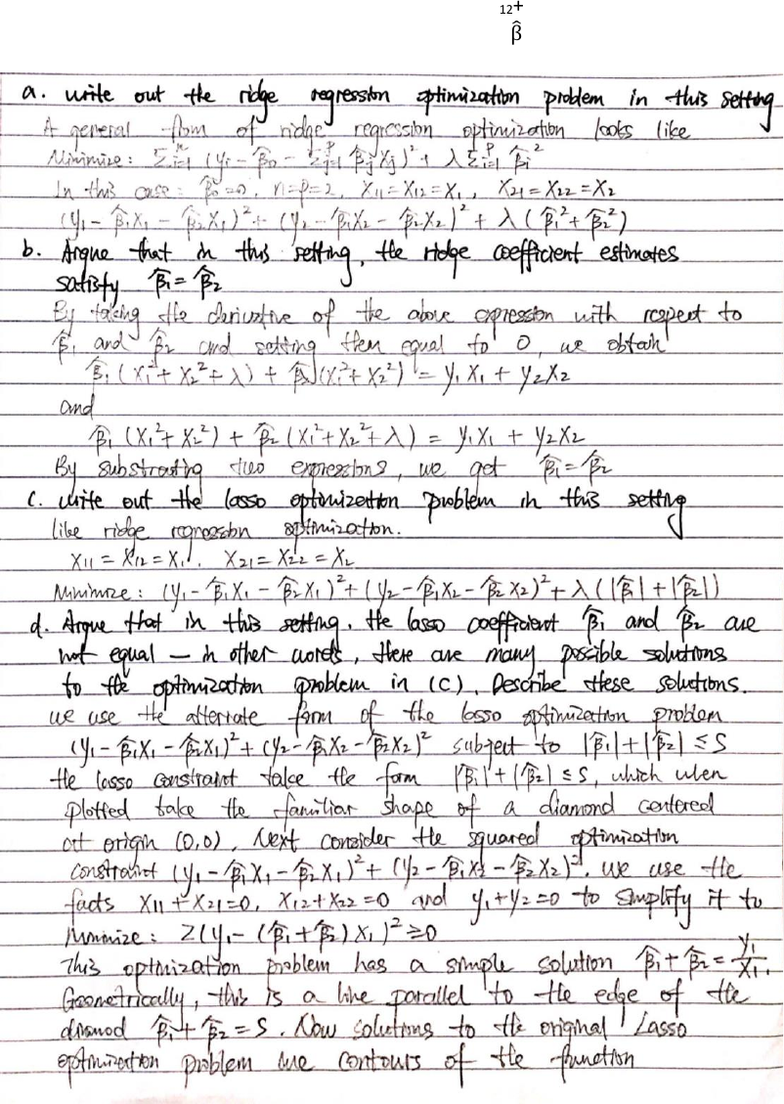 12+
β̂
a. write out the ridge regression optimization problem in this setting
A general form of ridge regression optimization looks like
Minimize: Σⁿᵢ₌₁ (yᵢ - β̂₀ - Σᵖⱼ₌₁ β̂ⱼxⱼ)² + λΣᵖᵢ₌₁ β̂ᵢ²
In this case: β̂₀=0, n=p=2, X₁₁=X₁₂=X₁, X₂₁=X₂₂=X₂
(y₁ - β̂₁X₁ - β̂₂X₁)² + (y₂ - β̂₁X₂ - β̂₂X₂)² + λ(β̂₁²+β̂₂²)
b. Argue that in this setting, the ridge coefficient estimates
satisfy β̂₁=β̂₂
By taking the derivative of the above expression with respect to
β̂₁ and β̂₂ and setting them equal to 0, we obtain
β̂₁(X₁²+X₂²+λ) + β̂₂(X₁²+X₂²) = y₁X₁ + y₂X₂
and
β̂₁(X₁²+X₂²) + β̂₂(X₁²+X₂²+λ) = y₁X₁ + y₂X₂
By substrating two expressions, we get β̂₁=β̂₂
c. write out the lasso optimization problem in this setting
like ridge regression optimization.
X₁₁ = X₁₂ = X₁, X₂₁ = X₂₂ = X₂
Minimize: (y₁-β̂₁X₁-β̂₂X₁)²+(y₂-β̂₁X₂-β̂₂X₂)²+λ(|β̂₁|+|β̂₂|)
d. Argue that in this setting, the lasso coefficient β̂₁ and β̂₂ are
not equal — in other words, there are many possible solutions
to the optimization problem in (c). Describe these solutions.
we use the alternate form of the lasso optimization problem
(y₁-β̂₁X₁-β̂₂X₁)²+(y₂-β̂₁X₂-β̂₂X₂)² subject to |β̂₁|+|β̂₂| ≤ S
the lasso constraint take the form |β̂₁|+|β̂₂| ≤ S, which when
plotted take the familiar shape of a diamond centered
at origin (0,0). Next consider the squared optimization
constraint (y₁-β̂₁X₁-β̂₂X₁)²+(y₂-β̂₁X₂-β̂₂X₂)². we use the
facts X₁₁+X₂₁=0, X₁₂+X₂₂=0 and y₁+y₂=0 to simplify it to
Minimize: 2(y₁-(β̂₁+β̂₂)X₁)²≥0
This optimization problem has a simple solution β̂₁+β̂₂=y₁/X₁.
Geometrically, this is a line parallel to the edge of the
diamod β̂₁+β̂₂=S. Now solutions to the original Lasso
optimization problem are contours of the function